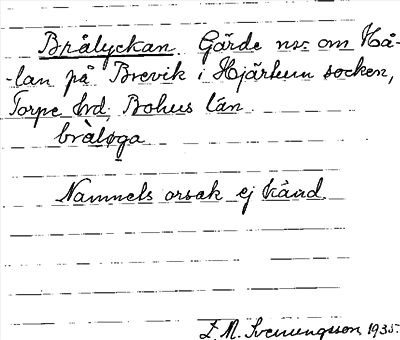 Brålyckan. Gärde nv: om Hå-
-lan på Brevik i Hjärtum socken,
Torpe hrd, Bohus län.
bràløga
Namnets orsak ej känd.
E. M. Svenungsson 1935.